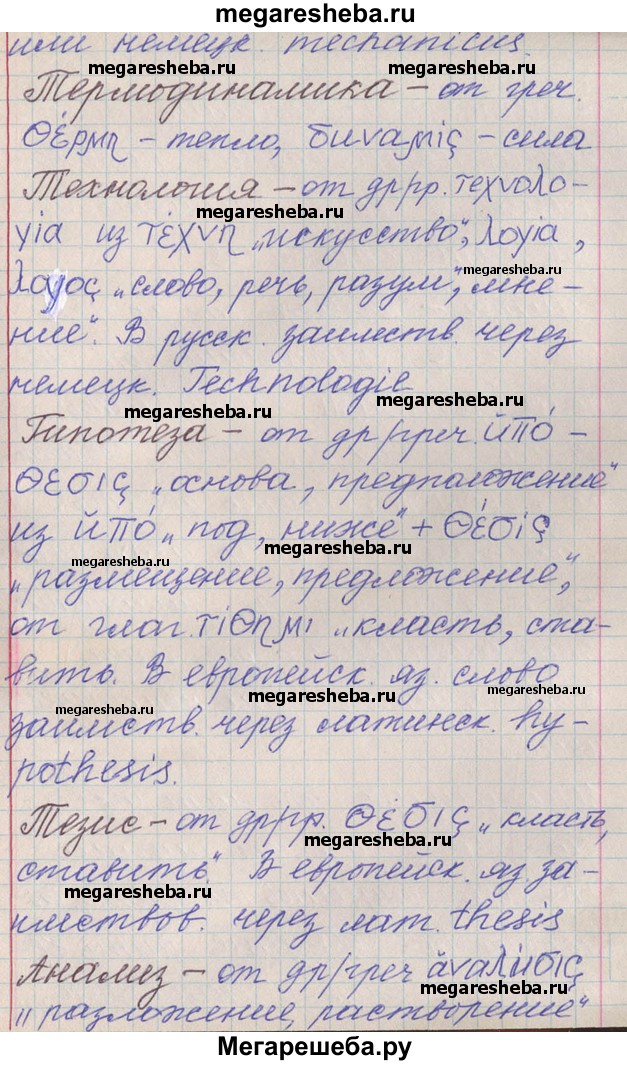 megaresheba.ru
или немецк. mechanicus.
megaresheba.ru megaresheba.ru
Термодинамика – от греч.
θέρμη – тепло, δυναμις – сила
megaresheba.ru
Технология – от др/гр. τεχνολο-
megaresheba.ru
γία из τέχνη „искусство“, λογία,
λογος „слово, речь, разум“, „мне-
megaresheba.ru
ние“. В русск. заимств. через
немецк. Technologie
megaresheba.ru megaresheba.ru
Гипотеза – от др/греч. ὑπό-
θεσις „основа, предположение“
из ὑπό „под, ниже“ + θέσις
megaresheba.ru megaresheba.ru
„размещение, предложение“,
от глаг. τίθημι „класть, ста-
вить. В европейск. яз. слово
megaresheba.ru megaresheba.ru megaresheba.ru
заимств. через латинск. hy-
pothesis.
Тезис – от др/гр. θέσις „класть,
megaresheba.ru
ставить“. В европейск. яз. за-
megaresheba.ru megaresheba.ru
имствов. через лат. thesis
Анализ – от др/греч ἀναλυσις
megaresheba.ru
„разложение, растворение“
Мегарешеба.ру